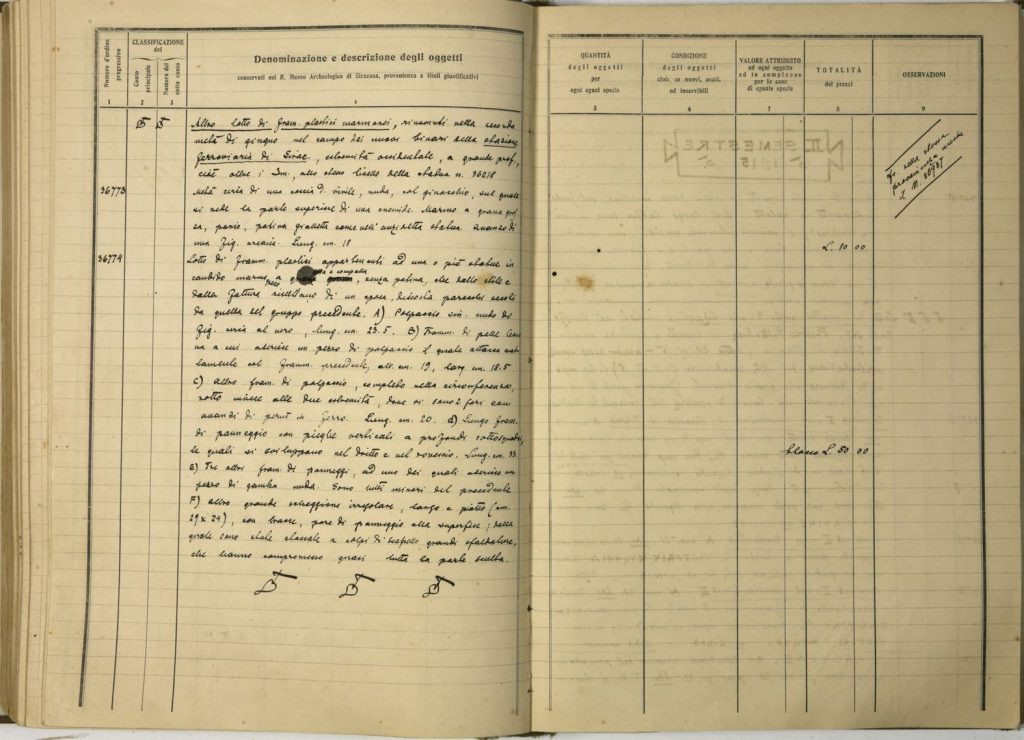 Numero d'ordine progressivo
CLASSIFICAZIONE del
Conto principale
Numero del sotto conto
Denominazione e descrizione degli oggetti
conservati nel R. Museo Archeologico di Siracusa, provenienza e titoli giustificativi
1 2 3 4
Altro lotto di framm. plastici marmorei, rinvenuti nella seconda
metà di giugno nel campo dei nuovi binari della stazione
ferroviaria di Sirac., estremità occidentale, a grande prof.,
cioè oltre i 3m. allo stesso livello della statua n. 36218
36773 Metà circa di una coscia d. virile, nuda, col ginocchio, sul quale
si vede la parte superiore di una cnemide. Marmo a grana gros
sa, pario, patina gialletta come nell'anzidetta statua. Avanzo di
una fig. arcaica. Lung. cm. 18
36774 Lotto di framm. plastici appartenenti ad una o più statue in
candido marmo a e compatta, senza patina, che dallo stile e
dalla fattura risultano di un epoca, discosta parecchi secoli
da quella del gruppo precedente. A) Polpaccio sin. nudo di
fig. circa al vero, lung. cm. 23.5. B) Framm. di pelle
na a cui aderisce un pezzo di polpaccio il quale attacca
col framm. precedente, alt. cm. 19, larg. cm. 18.5
C) altro fram. di polpaccio, completo nella circonferenza,
rotto invece alle due estremità, dove vi sono 2 fori con
avanzi di perni in ferro. Lung. cm. 20. d) Lungo fram.
di panneggio con pieghe verticali a profondi sottosquadri,
le quali si sviluppano nel dritto e nel rovescio. Lung. cm. 33.
E) Tre altri fram. di panneggi, ad uno dei quali aderisce un
pezzo di gamba nuda. Sono tutti minori del precedente
F) altro grande scheggione irregolare, largo e piatto (cm.
29 x 24), con tracce, pare di panneggio alla superfice; dalla
quale sono state staccate a colpi di scalpello grandi sfaldature,
che hanno compromesso quasi tutta la parte scolta.
QUANTITÀ degli oggetti per ogni eguale specie
CONDIZIONE degli oggetti cioè: se nuovi, usati, od inservibili
VALORE ATTRIBUITO ad ogni oggetto ed in complesso per le cose di eguale specie
TOTALITÀ dei prezzi
OSSERVAZIONI
5 6 7 8 9
II SEMESTRE
1915
della stessa
provenienza
il N. 36937
L. 10 00
blocco L. 50 00